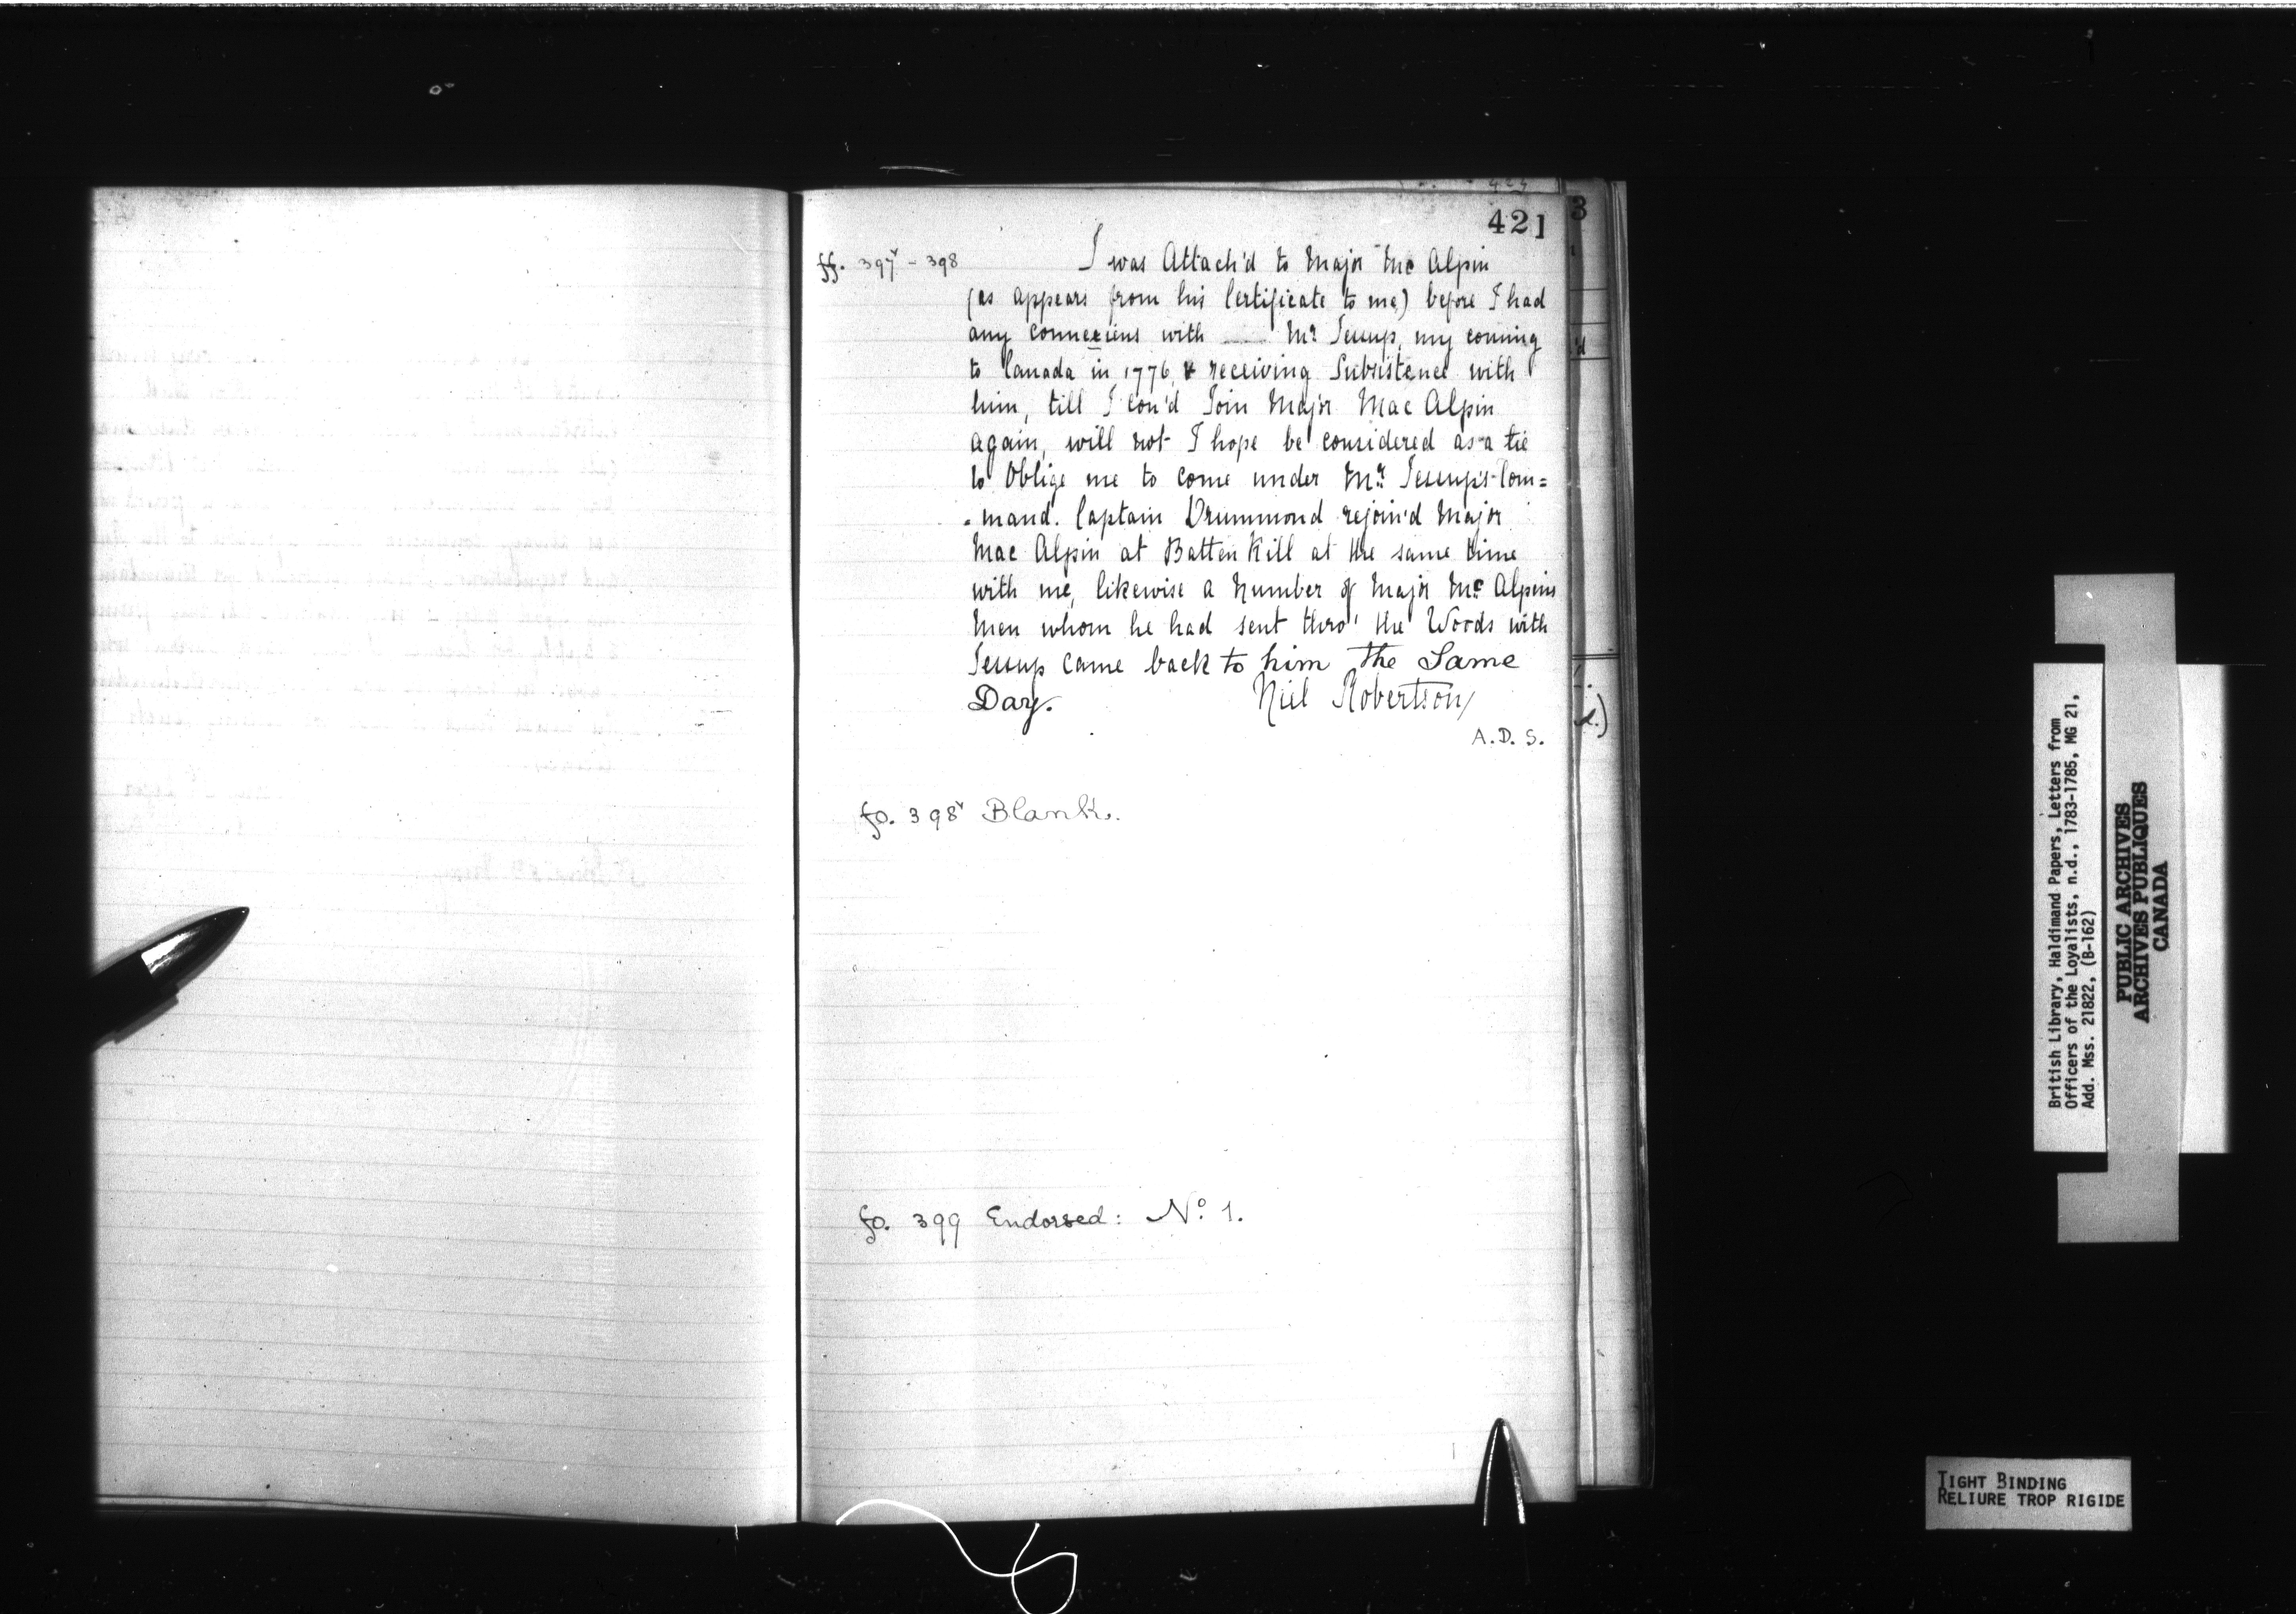 421
ff. 397v - 398
I was Attach'd to Major Mc Alpin
(as appears from his Certificate to me) before I had
any connexiens with ___ Mr Jessup, my coming
to Canada in 1776, & receiving Subsistence with
him, till I cou'd Join Major Mac Alpin
again, will not I hope be considered as a tie
to Oblige me to come under Mr Jessup's Com=
=mand. Captain Drummond rejoin'd Major
Mac Alpin at Batten Kill at the same time
with me, likewise a Number of Major Mc Alpins
Men whom he had sent thro' the Woods with
Jessup came back to him the Same
Day. Niel Robertson,
A. D. S.
fo. 398v Blank.
fo. 399 Endorsed: No. 1.
3
British Library, Haldimand Papers, Letters from
Officers of the Loyalists, n.d., 1783-1785, MG 21,
Add. Mss. 21822, (B-162)
PUBLIC ARCHIVES
ARCHIVES PUBLIQUES
CANADA
TIGHT BINDING
RELIURE TROP RIGIDE